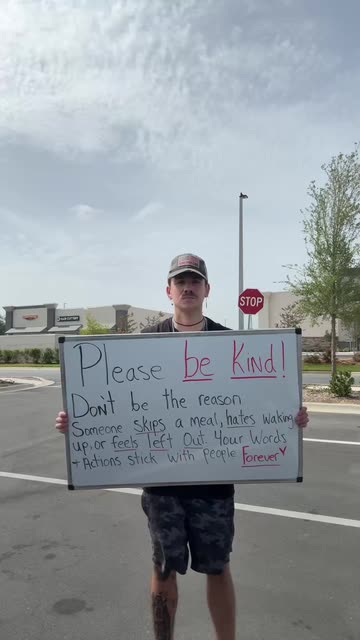 STOP
Please be Kind!
Don't be the reason
Someone skips a meal, hates waking
up, or feels left Out. Your Words
+ Actions stick with people Forever